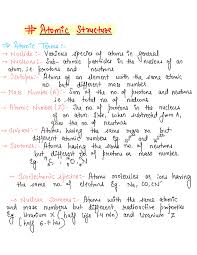 # Atomic Structure
⇒ Atomic Terms:-
→ Nuclide:- Various species of atoms in general
→ Nucleons: Sub-atomic particles in the nucleus of an
atom, ie protons and neutrons
→ Isotopes: Atoms of an element with the same atomic
no. but different mass number
→ Mass Number (A): Sum of the no of protons and neutrons
ie the total no of nucleons
→ Atomic Number (Z): The no of protons in the nucleus
of an atom. This, when subtracted from A,
gives no of neutrons
→ Isobars: Atoms having the same mass no but
different atomic number eg and
→ Isotones: Atoms having the same no of neutrons
but different no of protons or mass number
eg
→ Isoelectronic species: Atoms molecules or ions having
the same no of electrons eg N₂, CO, CN⁻
→ Nuclear isomers: Atoms with the same atomic
and mass numbers but different radioactive properties
eg Uranium X (half life 1.4 min) and Uranium Z
(half 6.7 hr)